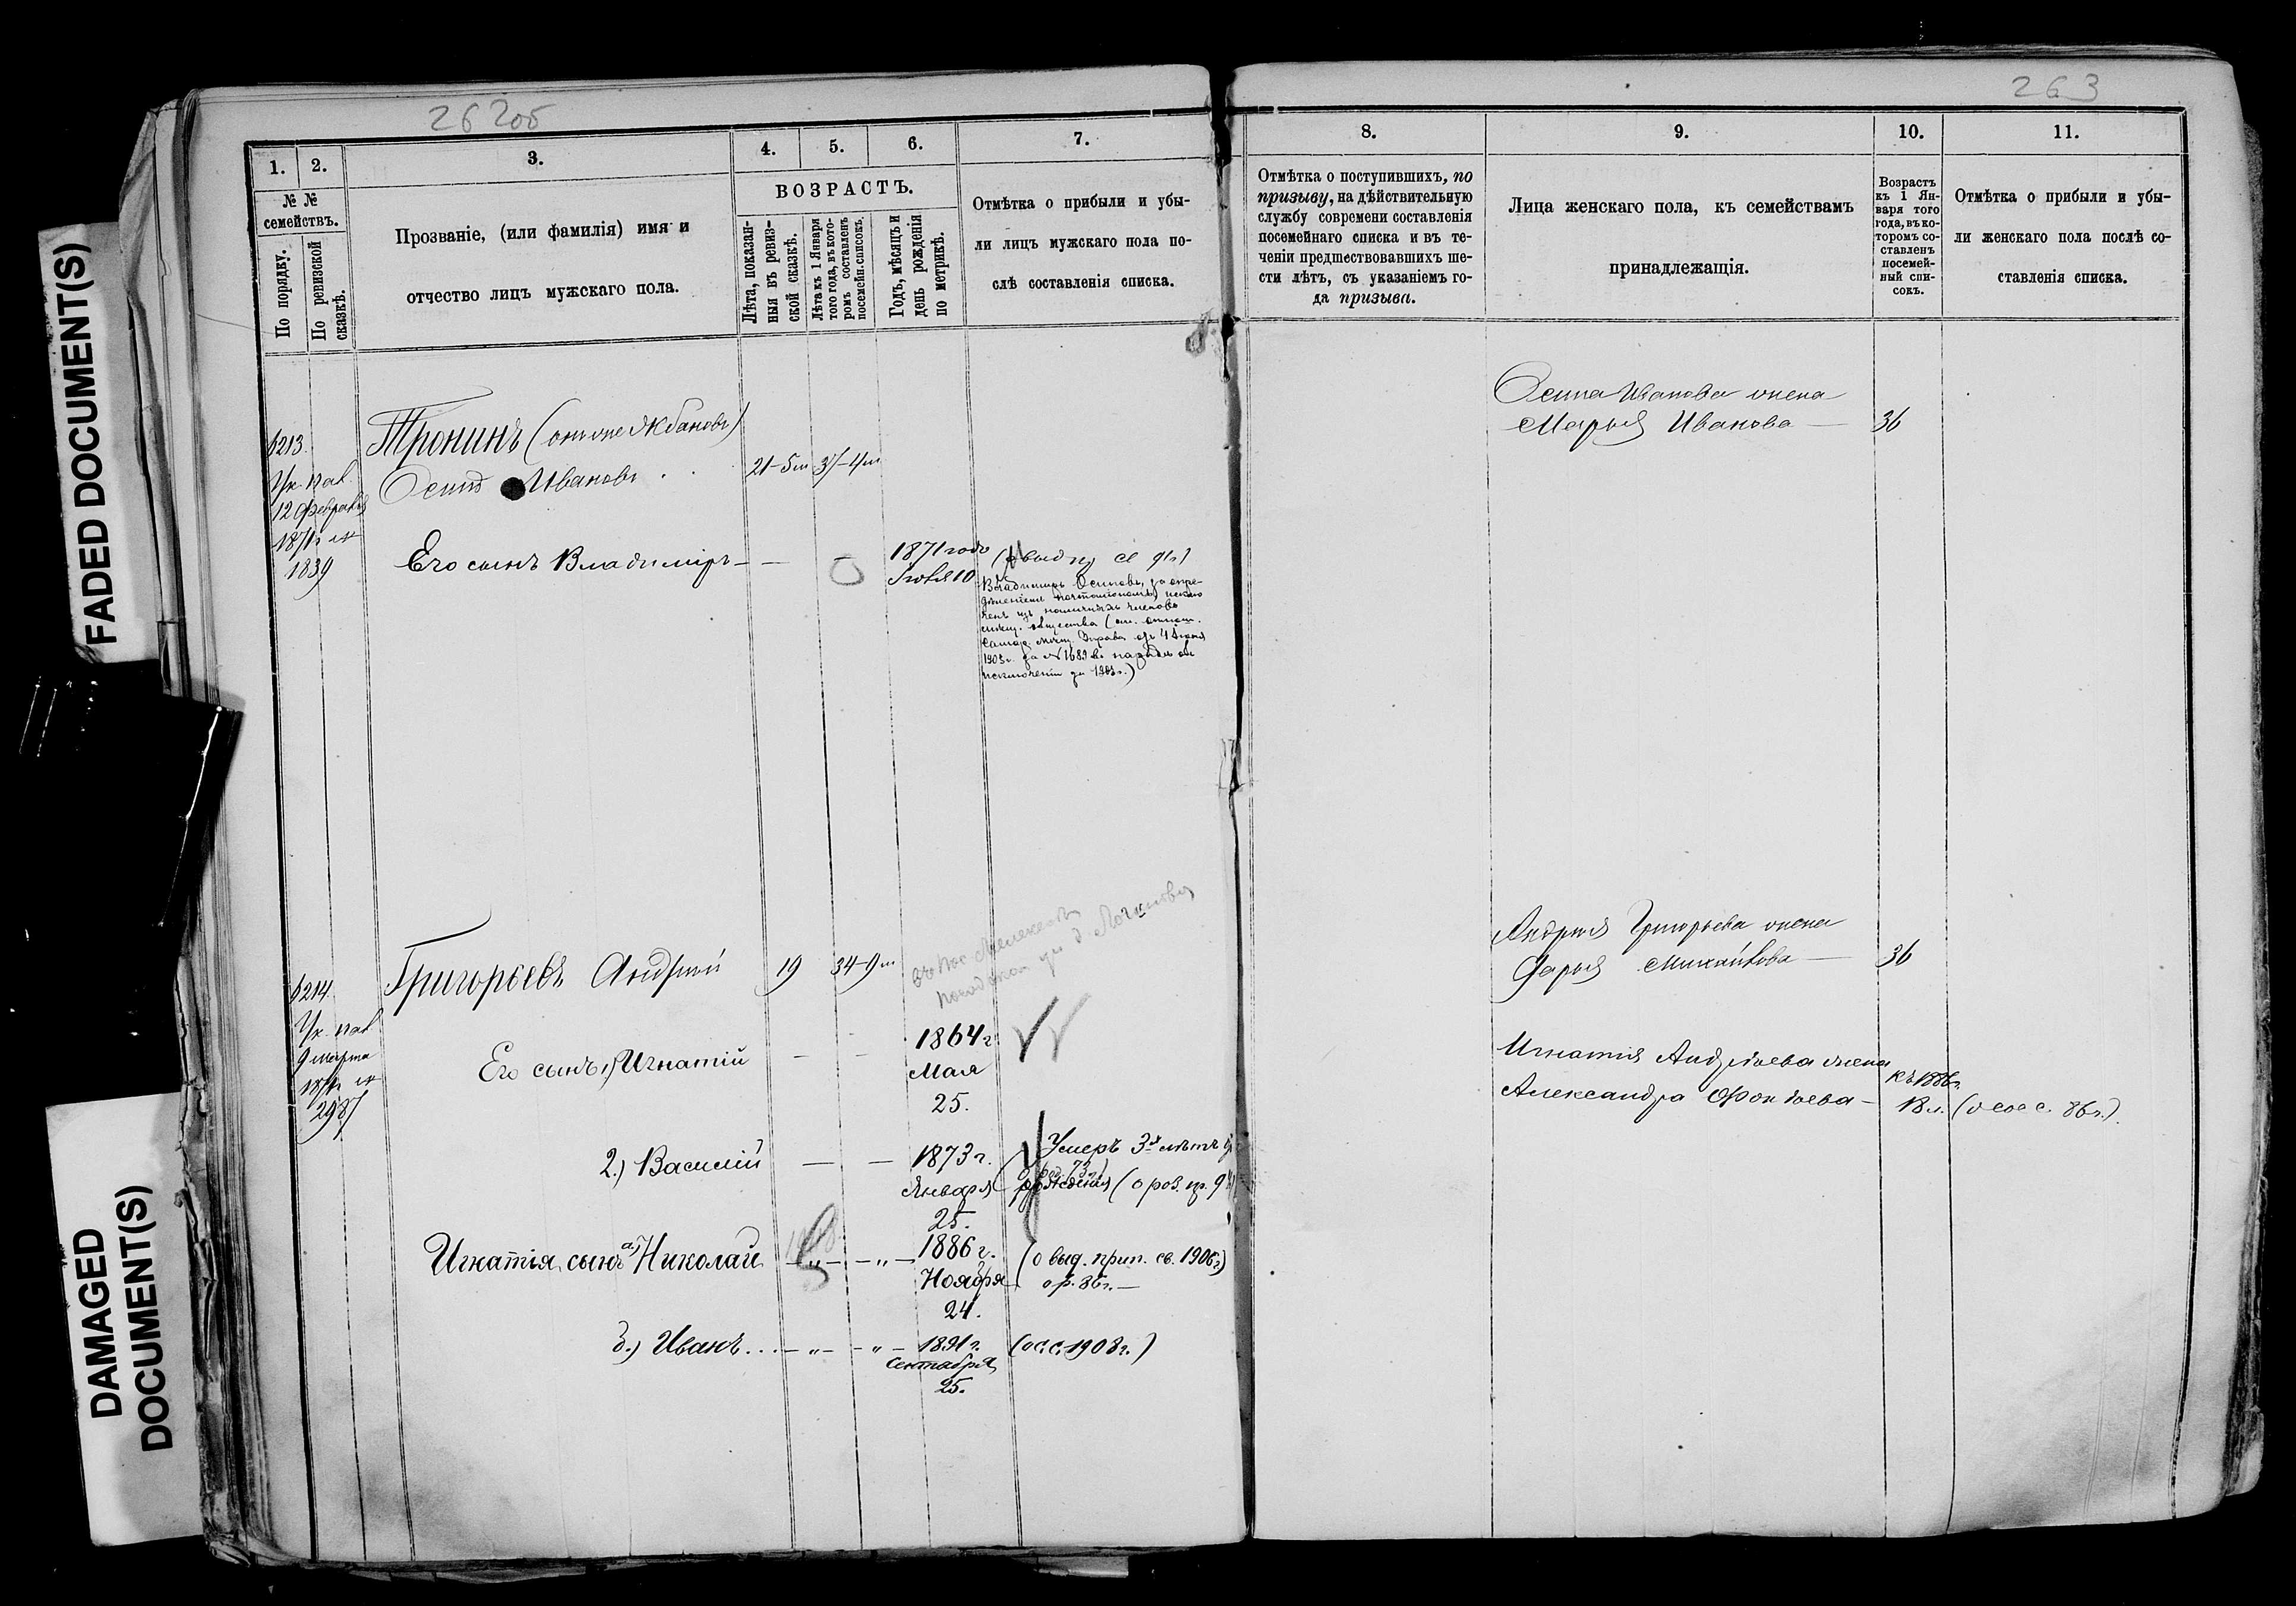 FADED DOCUMENT(S)
DAMAGED
DOCUMENT(S)
262об
1.
2.
3.
4.
5.
6.
7.
№ №
семействъ.
По порядку.
По ревизской
сказкѣ.
Прозваніе, (или фамилія) имя и
отчество лицъ мужскаго пола.
ВОЗРАСТЪ.
Лѣта, показан-
ныя въ ревиз-
ской сказкѣ.
Лѣта къ 1 Января
того года, въ кото-
ромъ составленъ
посемейн. списокъ.
Годъ, мѣсяцъ и
день рожденія
по метрикѣ.
Отмѣтка о прибыли и убы-
ли лицъ мужскаго пола по-
слѣ составленія списка.
213.
Ук. пал.
12 Февраля
1871 г №
1839
Тронинъ (онъ же Якбановъ)
Осипъ Ивановъ
21-5 м
37-4 м
Его сынъ Владиміръ
1871 года
Іюля 10
Владиміръ Осиповъ, за опре-
дѣленіемъ почталіономъ, исклю
ченъ изъ наличныхъ членовъ
мѣщ. общества (
Управы отъ 4 Іюня
1903 г. за № 1689
исключеніи за 1903 г.)
214
Ук. пал
9 марта
1871 г №
2987
Григорьевъ Андрей
19
34-9 м
Его сынъ 1) Игнатій
1864 г
Мая
25.
2.) Василій
1873 г.
Января
25.
Умеръ 3х лѣтъ
Игнатія, сынъ а) Николай
1886 г.
Ноября
24.
(о выд. прип. св. 1906 г.)
о р. 86 г.
б.) Иванъ
1891 г.
Сентября
25.
(о с. с. 1908 г.)
263
8.
9.
10.
11.
Отмѣтка о поступившихъ, по
призыву, на дѣйствительную
службу современи составленія
посемейнаго списка и въ те-
ченіи предшествовавшихъ ше-
сти лѣтъ, съ указаніемъ го-
да призыва.
Лица женскаго пола, къ семействамъ
принадлежащія.
Возрастъ
къ 1 Ян-
варя того
года, въ ко-
торомъ со-
ставленъ
посемей-
ный спи-
сокъ.
Отмѣтка о прибыли и убы-
ли женскаго пола послѣ со-
ставленія списка.
Осипа Иванова жена
Марья Иванова
36
Андрея Григорьева жена
Дарья Михайлова
36
Игнатія Андреева жена
Александра
къ 1886 г.
18 л.
86 г.)